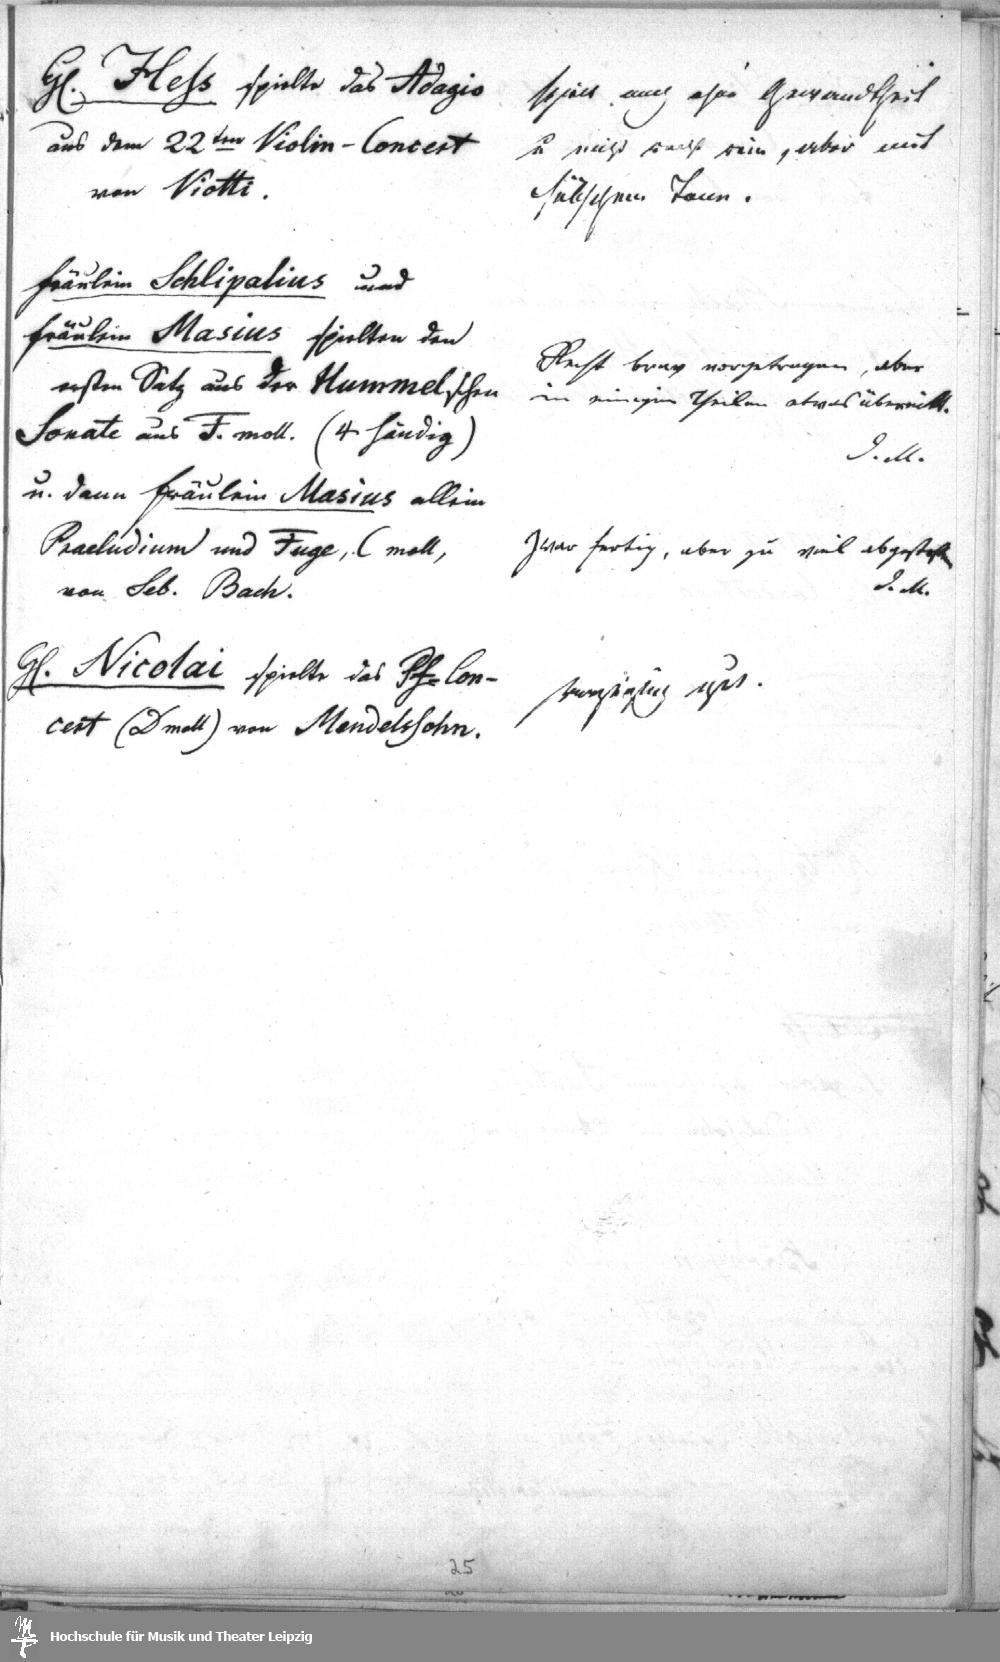 H. Heſs spielte das Adagio
aus dem 22ten Violin-Concert
von Viotti.
spielt noch ohne Gewandtheit
u nicht recht rein, aber mit
hübschem Tone.
Fräulein Schlipalius und
Fräulein Masius spielten den
ersten Satz aus der Hummelschen
Sonate aus F. moll. (4 händig)
Recht brav vorgetragen, aber
in einigen Theilen etwas übereilt.
I. M.
u. dann Fräulein Masius allein
Praeludium und Fuge, C moll,
von Seb. Bach.
Zwar fertig, aber zu viel abgestoßen
I. M.
H. Nicolai spielte das Pf= Con-
cert (D moll) von Mendelsſohn.
gut.
25
Hochschule für Musik und Theater Leipzig